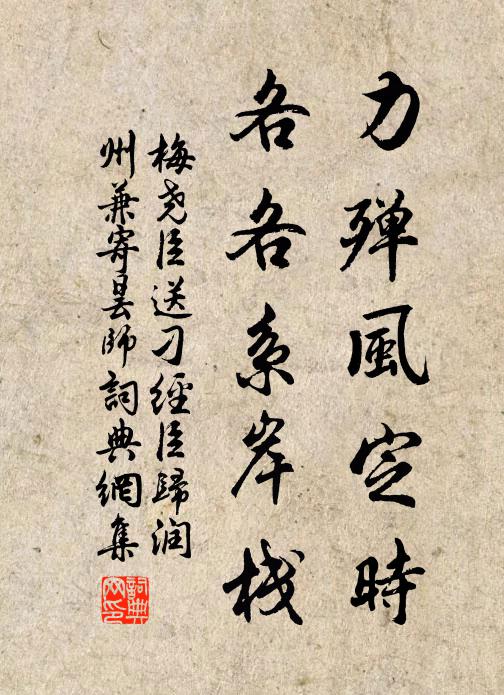 力殫風定時
各各系岸栈
梅堯臣送刁經臣歸润
州兼寄曇師詞典網集